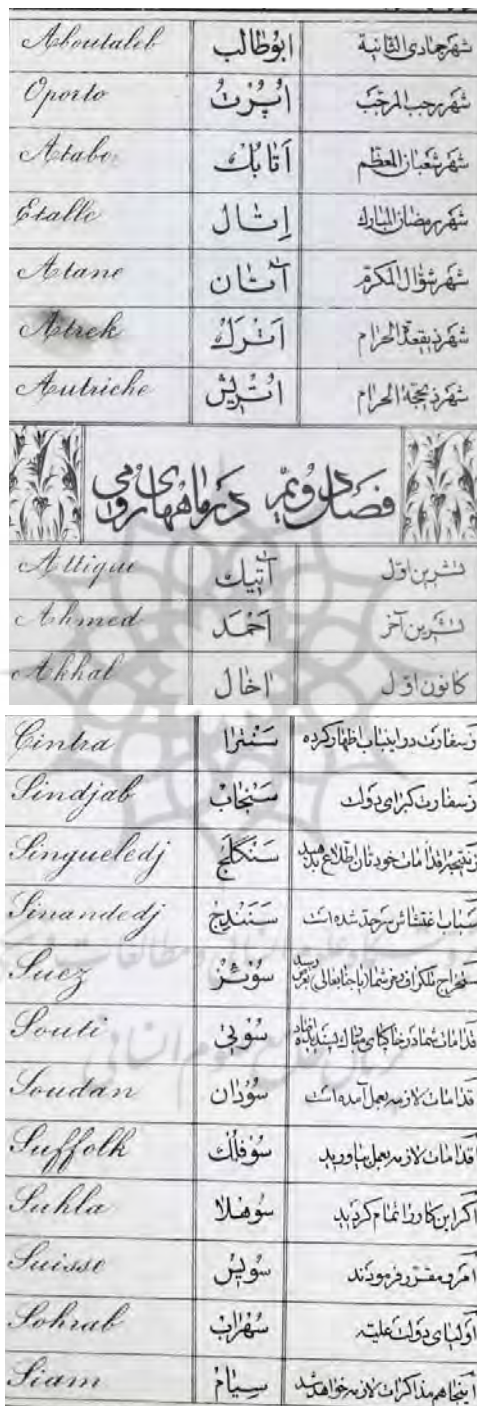 Aboutaleb ابوطالب شهر جمادی الثانیة
Oporto اُپُرْتُ شهر رجب المرجب
Atabe اَتابُك شهر شعبان المعظم
Etalle اِتال شهر رمضان المبارك
Atane آتان شهر شوال المکرم
Atrek اَتْرَك شهر ذیقعدة الحرام
Autriche اُتْریش شهر ذیحجة الحرام
فصل دویم در ماههای رومی
Attique آتیك تشرین اول
Ahmed اَحْمَد تشرین آخر
Akhal اخال کانون اول
Cintra سَنْترا از سفارت در اینباب اظهار کرده
Sindjab سَنْجاب از سفارت کبرای دولت
Singueledj سَنْگِلَج از نتیجه اقدامات خودتان اطلاع بدهید
Sinandedj سَنَنْدِج اسباب اغتشاش سرحد شده است
Suez سُوئِز
Souti سُوتی
Soudan سُوْدان اقدامات لازمه بعمل آمده است
Suffolk سُوْفُلْك اقدامات لازمه بعمل بیاورید
Suhla سُوهْلا اگر این کار را تمام کردید
Suisse سُویِس امر و مقرر فرمودند
Sohrab سُهْراب اولیای دولت علیّه
Siam سِیام اینجا هم مذاکرات لازمه خواهد شد